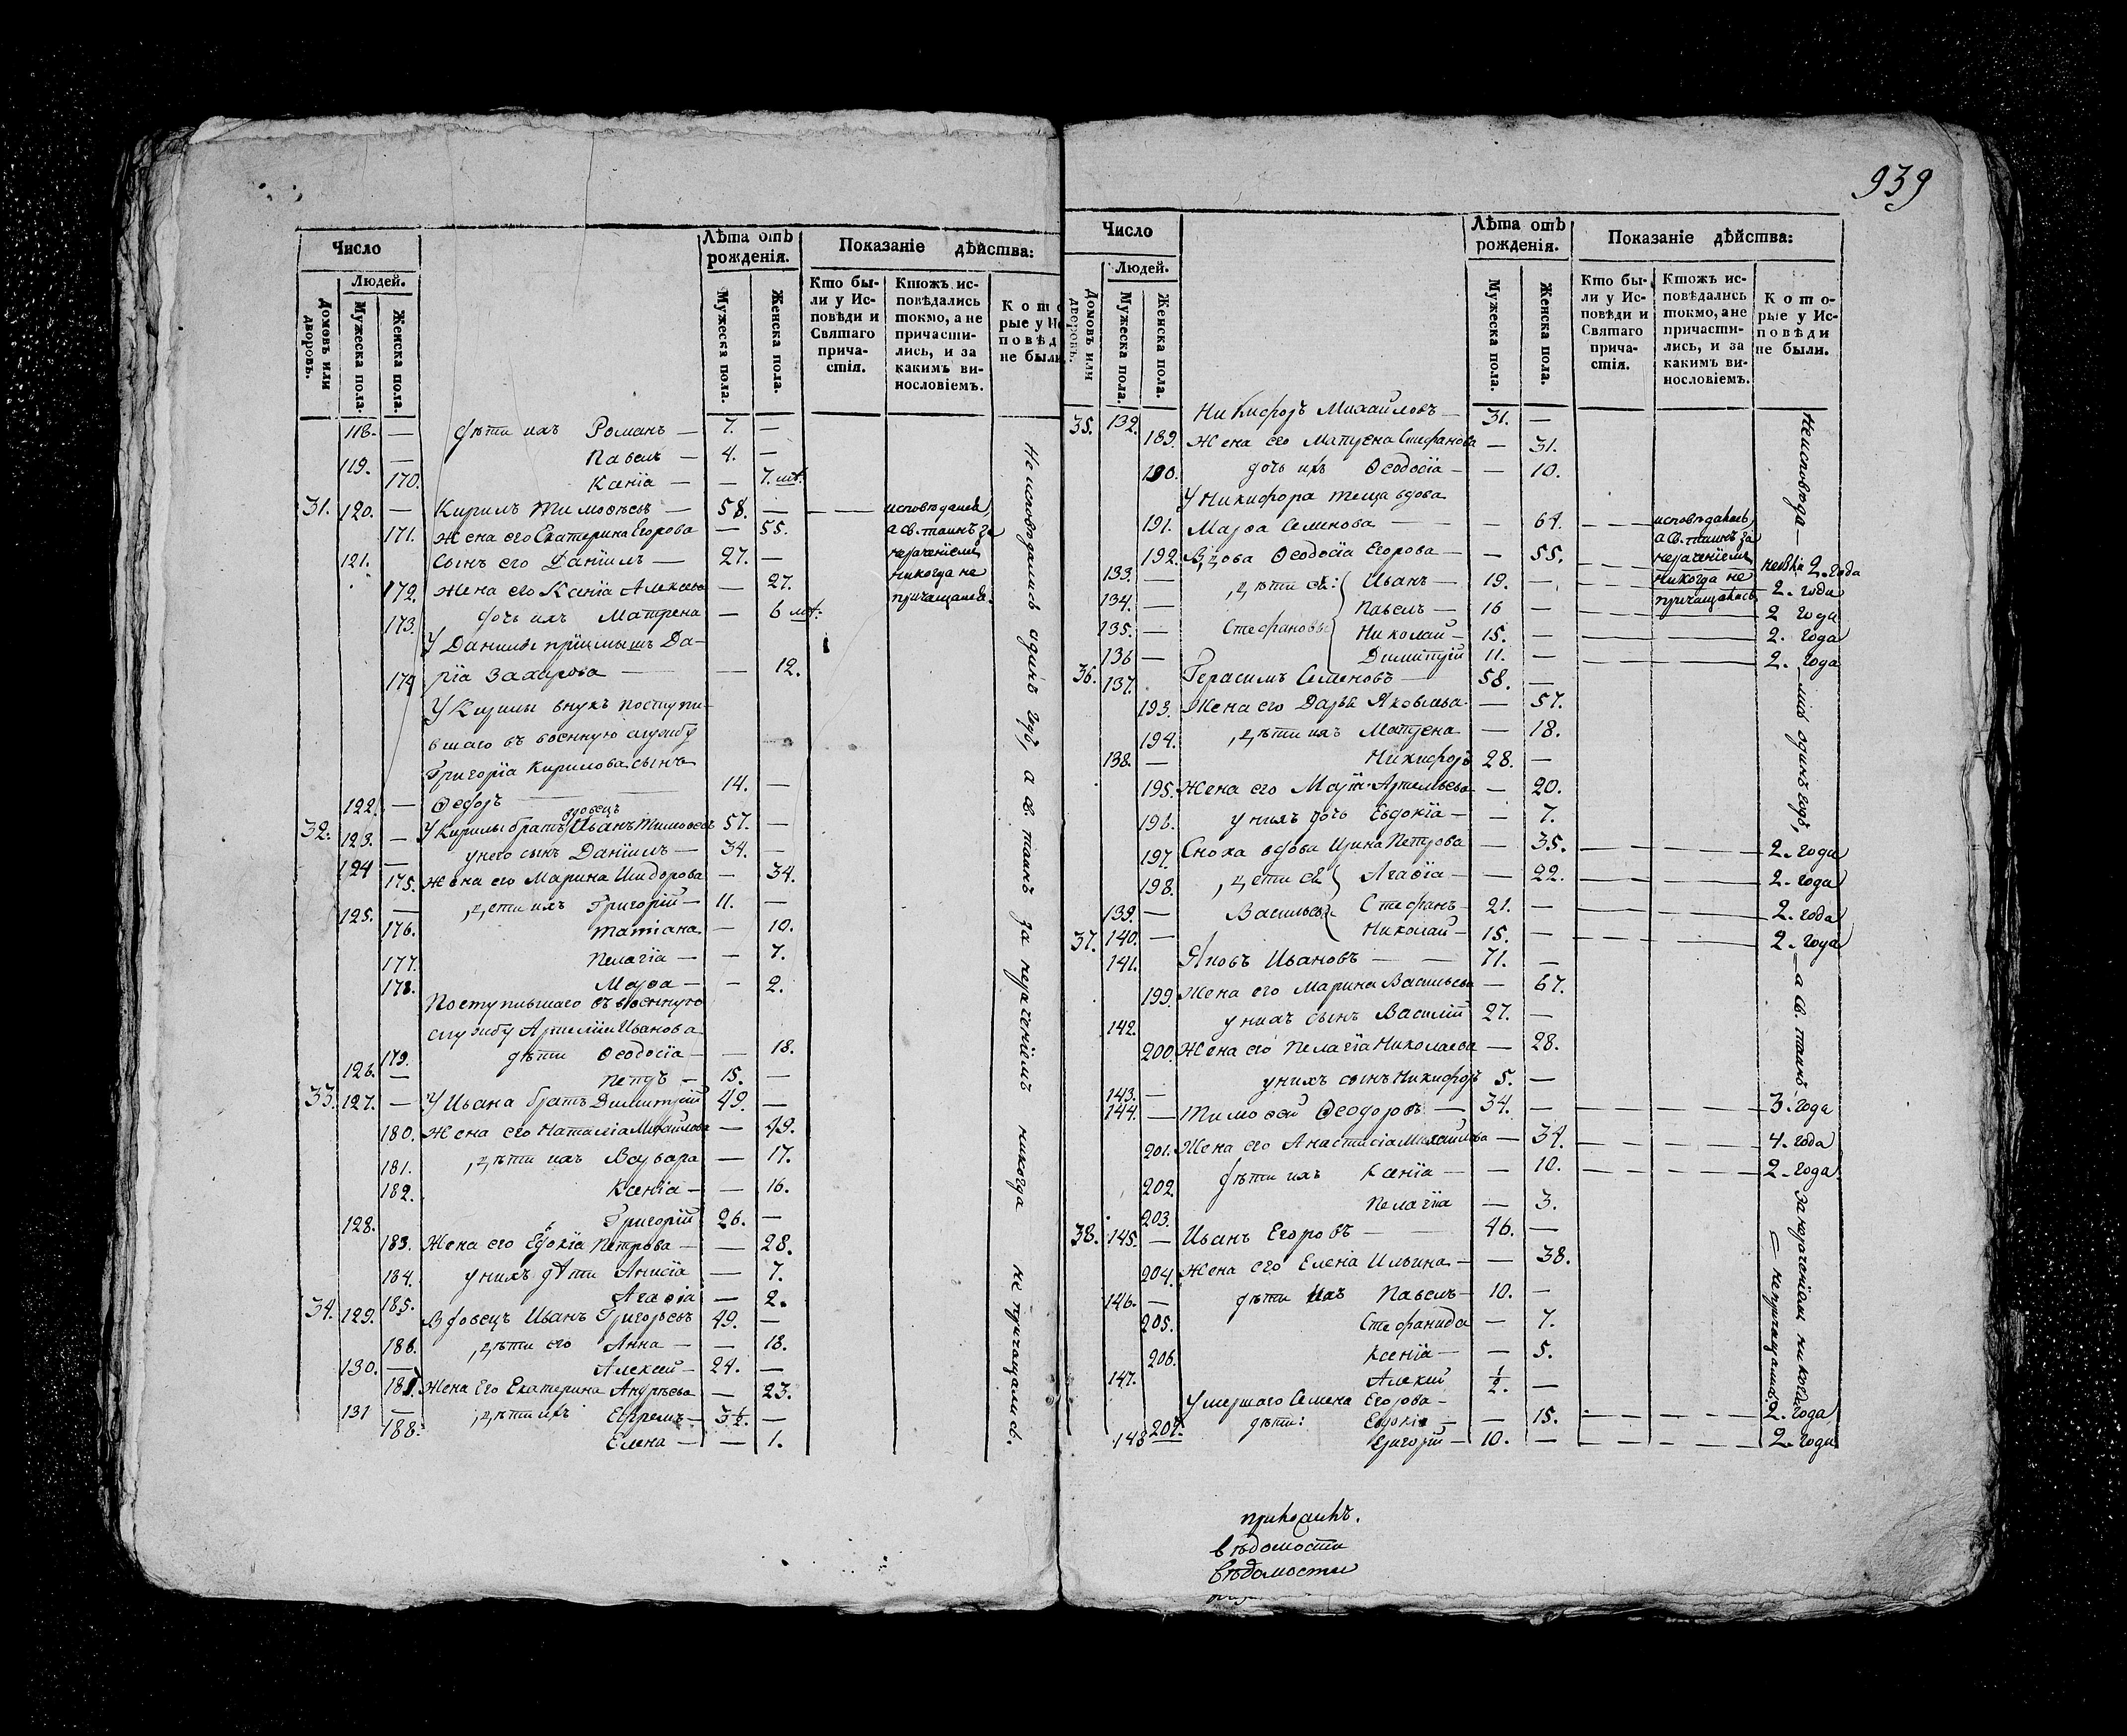 939
Число
Лѣта отъ рожденія.
Показаніе дѣйства:
Домовъ или дворовъ.
Людей.
Мужеска пола.
Женска пола.
Мужеска пола.
Женска пола.
Кто были у Исповѣди и Святаго причастія.
Ктожъ исповѣдались токмо, а не причастились, и за какимъ винословіемъ.
Которые у Исповѣд не были.
118. — дѣти ихъ Романъ — 7. —
119. — Павелъ — 4. —
170. Ксенія — — 7. мѣ.
31. 120. — Кирилъ Тимоѳѣевъ — 58. — — — исповѣдался
171. Жена его Екатерина Егорова — 55. а св. таинъ за
121. Сынъ его Даніилъ — 27. — нераченіемъ
172. Жена его Ксенія Алексѣева — 27. никогда не
173. дочь ихъ Матрена — 6 мѣ. причащался.
У Даніилы пріимышъ Да-
174 рія Захарова — — 12.
У Кирилы внукъ поступи-
вшаго въ военную службу
Григорія Кирилова сынъ
122. — Ѳедоръ — 14. —
вдовецъ
32. 123. — У Кирилы братъ Иванъ Тимоѳѣевъ 57. —
124 — у него сынъ Даніилъ — 34. —
175. Жена его Марина Исидорова — 34.
125. — дѣти ихъ Григорій — 11. —
176. Татіана — 10.
177. Пелагія — — 7.
178. Марѳа — — 2.
Поступившаго въ военную
службу Артемія Иванова
179. дѣти Ѳеодосія — — 18.
126. — Петръ — 15. —
33. 127. — У Ивана братъ Димитрій 49. —
180. Жена его Наталія Михайлова — 49.
181. дѣти ихъ Варвара — 17.
182. Ксенія — — 16.
128. Григорій 26. —
183. Жена его Евдокія Петрова — — 28.
184. у нихъ дѣти Анисія — 7.
185. Агаѳія — 2.
34. 129. Вдовецъ Иванъ Григорьевъ 49. —
186. дѣти его Анна — — 18.
130. — Алексей — 24. —
187. Жена Его Екатерина Андрѣева — 23.
131 — дѣти ихъ Ефремъ — 3½. —
188. Елена — — 1.
Не исповѣдались одинъ годъ, а св. таинъ за нераченіемъ никогда не причащались.
Число
Лѣта отъ рожденія.
Показаніе дѣйства:
Домовъ или дворовъ.
Людей.
Мужеска пола.
Женска пола.
Мужеска пола.
Женска пола.
Кто были у Исповѣди и Святаго причастія.
Ктожъ исповѣдались токмо, ане причастились, и за какимъ винословіемъ.
Которые у Исповѣди не были.
35. 132. Никифоръ Михайловъ — 31. —
189. Жена его Матрена Стефанова — 31.
190. дочь ихъ Ѳеодосіа — — 10.
У Никифора теща вдова
191. Марѳа Семенова — — — 64. — — исповѣдалась
а св. таинъ за
192. Вдова Ѳеодосіа Егорова — — 55. нераченіемъ 2. года
133. — дѣти ея: Иванъ — 19. — никогда не 2. года
134. — Павелъ — 16 — причащалась 2 года
135. — Стефановы Николай — 15. — 2. года
136 — Димитрій 11. — 2. года
36. 137. Герасимъ Семеновъ — 58. —
193. Жена его Дарья Яковлева — 57.
194. дѣти ихъ Матрена — 18.
138. — Никифоръ 28. —
195. Жена его Артемьева — 20.
196. у нихъ дочь Евдокія — — 7.
197. Сноха вдова Ирина Петрова — 35. — 2. года
198. дѣти ея Агаѳіа — — 22. — 2. года
139. — Васильевы Стефанъ — 21. — 2. года
37. 140. — Николай — 15. — 2. года
141. Яковъ Ивановъ — — 71. —
199. Жена его Марина Васильева — 67.
142. у нихъ сынъ Василій 27. —
200. Жена его Пелагіа Николаева — 28.
143. — у нихъ сынъ Никифоръ 5. —
144. — Тимоѳей Ѳеодоровъ — 34. — 3. года
201. Жена его Анастасіа Михайлова — 34. — 4. года
202. дѣти ихъ Ксеніа — — 10. — 2. года
203. Пелагіа — 3.
38. 145. — Иванъ Егоровъ — — 46. —
204. Жена его Еленіа Ильина — — 38.
146. — дѣти ихъ Павелъ — 10. —
205. Стефанида — 7.
206. Ксеніа — — 5.
147. Алексій ½. —
Умершаго Семена Егорова —
207. дѣти: Евдокіа — — 15. — 2. года
148 Григорій — 10. — 2. года
Не исповѣда — лись одинъ годъ, — а св. таинъ за нераченіемъ никогда — не причащались.
вѣдомости
вѣдомости